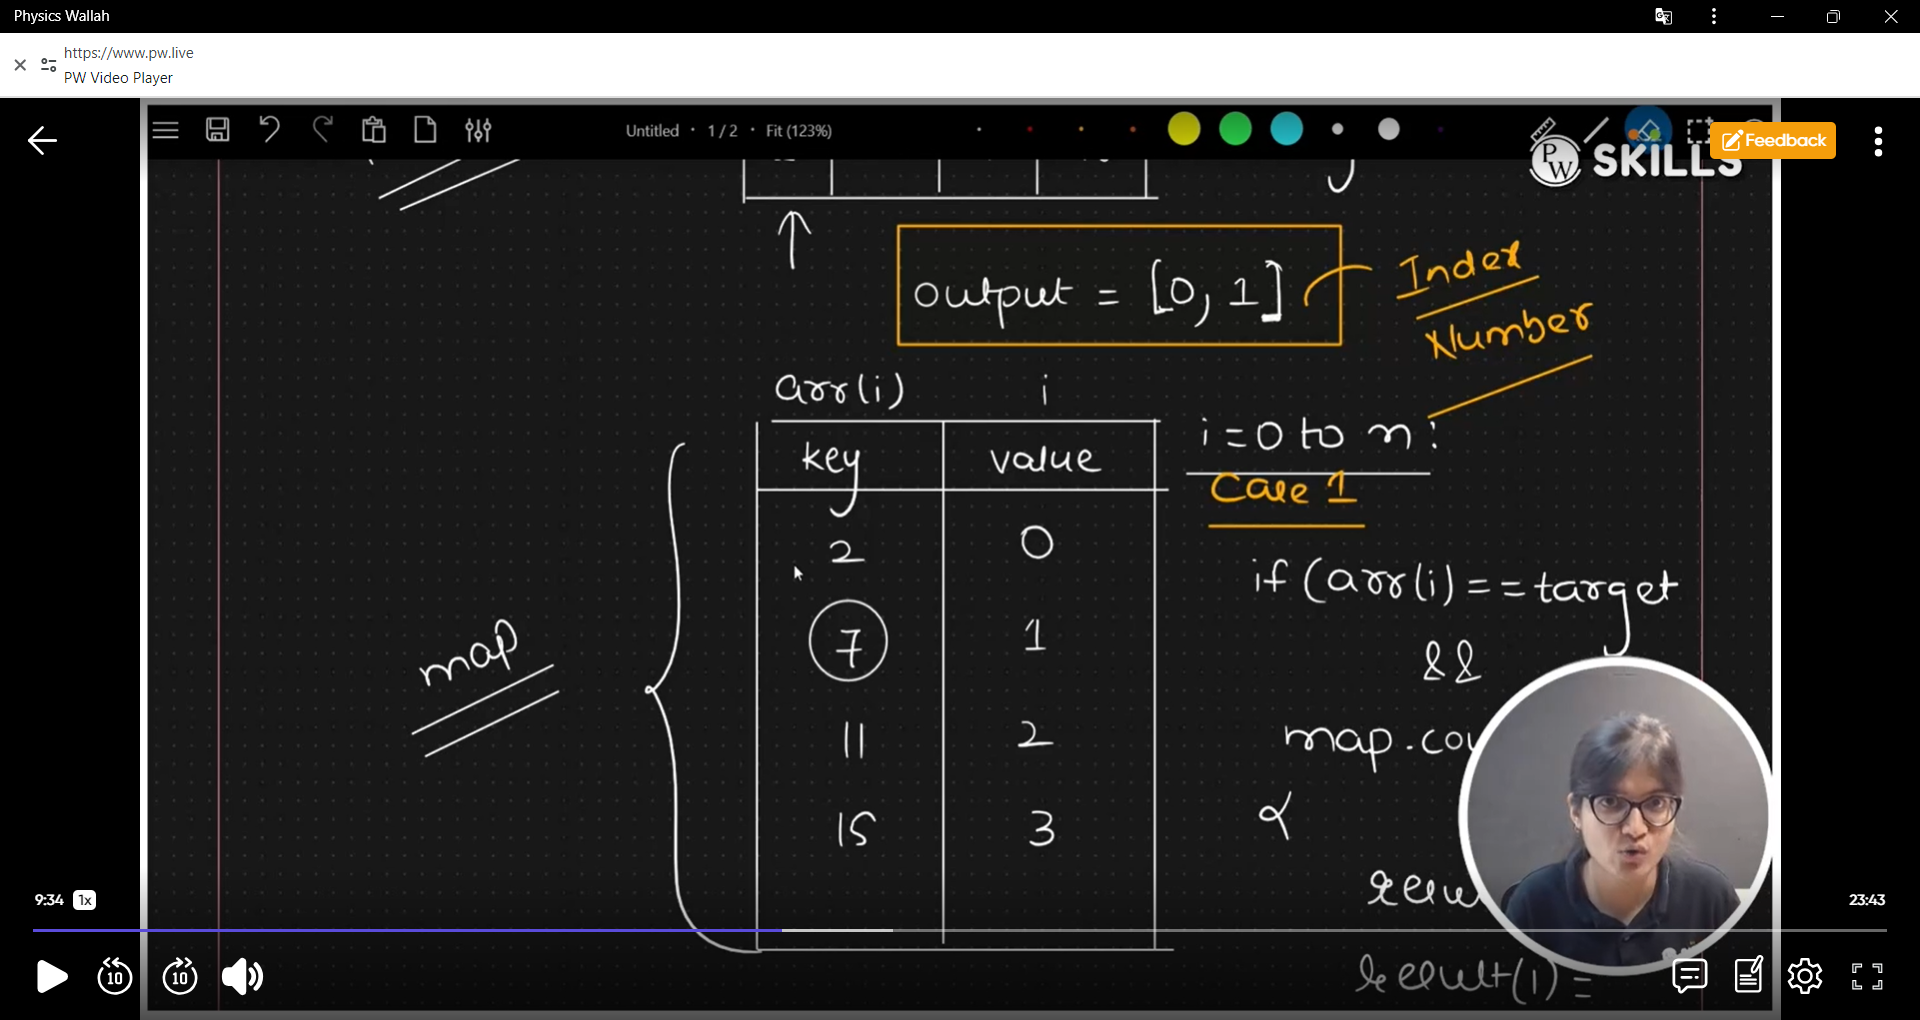 Physics Wallah
https://www.pw.live
PW Video Player
Untitled · 1 / 2 · Fit (123%)
Feedback
PW SKILLS
output = [0, 1]
Index
Number
arr(i) i
key value
2 0
7 1
11 2
15 3
map
i = 0 to n :
Case 1
if (arr(i) == target
&&
map.cou
result(1) =
9:34 1x
23:43
10
10